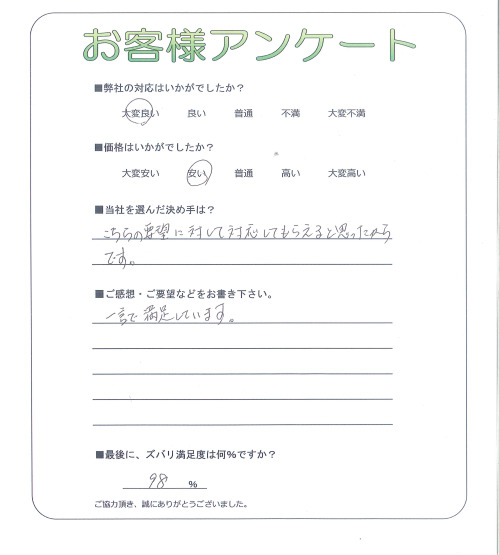 お客様アンケート
■弊社の対応はいかがでしたか？
大変良い 良い 普通 不満 大変不満
■価格はいかがでしたか？
大変安い 安い 普通 高い 大変高い
■当社を選んだ決め手は？
こちらの要望に対して対応してもらえると思ったから
です。
■ご感想・ご要望などをお書き下さい。
一言で満足しています。
■最後に、ズバリ満足度は何%ですか？
98 %
ご協力頂き、誠にありがとうございました。